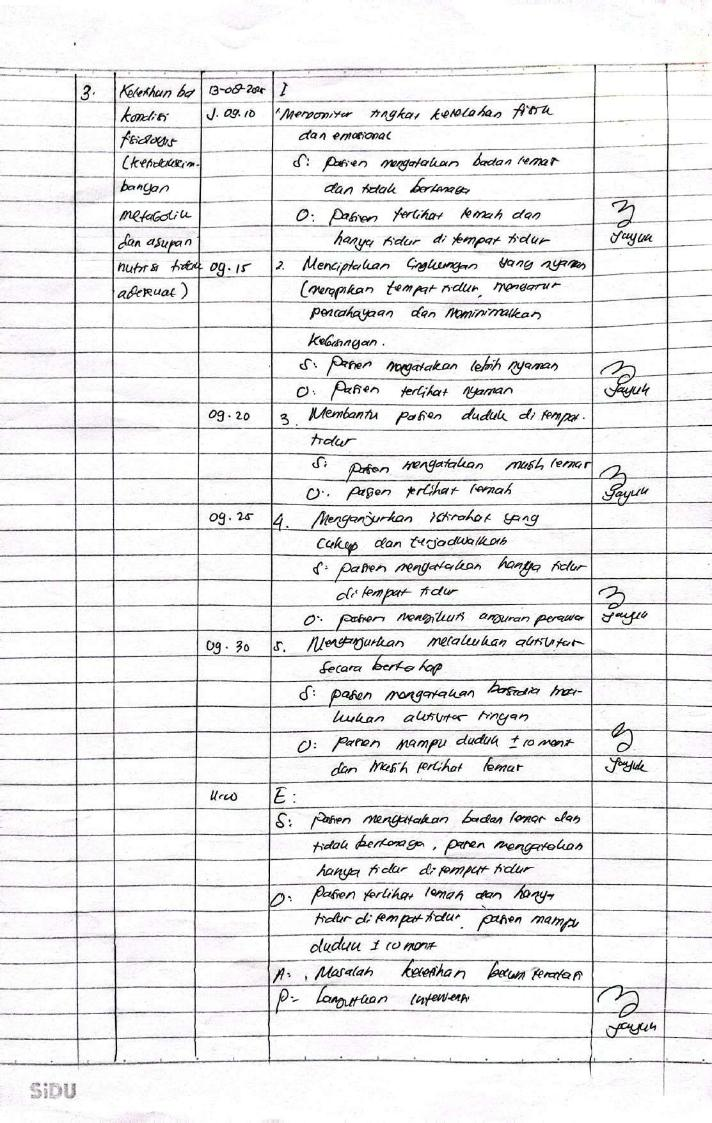 3. Keletihan bd 13-08-2025 I
kondisi J. 09.10 1 Memonitor tingkat kelelahan fisik
fisiologis dan emosional
(ketidakseim- S: pasien mengatakan badan lemas
bangan dan tidak bertenaga
metabolik O: pasien terlihat lemah dan
dan asupan hanya tidur di tempat tidur
nutrisi tidak 09.15 2. Menciptakan lingkungan yang nyaman
adekuat) (merapikan tempat tidur, mengatur
pencahayaan dan Meminimalkan
kebisingan.
S: pasien mengatakan lebih nyaman
O: Pasien terlihat nyaman
09.20 3. Membantu pasien duduk di tempat
tidur
S: pasien mengatakan masih lemas
O: pasien terlihat lemah
09.25 4. Menganjurkan istirahat yang
cukup dan terjadwalkan
S: pasien mengatakan hanya tidur
di tempat tidur
O: pasien mengikuti anjuran perawat
09.30 5. Menganjurkan melakukan aktivitas
secara bertahap
S: pasien mengatakan bersedia mela-
kukan aktivitas ringan
O: pasien mampu duduk ± 10 menit
dan masih terlihat lemas
E:
S: pasien mengatakan badan lemas dan
tidak bertenaga, pasien mengatakan
hanya tidur di tempat tidur
O: pasien terlihat lemah dan hanya
tidur di tempat tidur, pasien mampu
duduk ± 10 menit
A: Masalah keletihan belum teratasi
P: Lanjutkan intervensi
SiDU